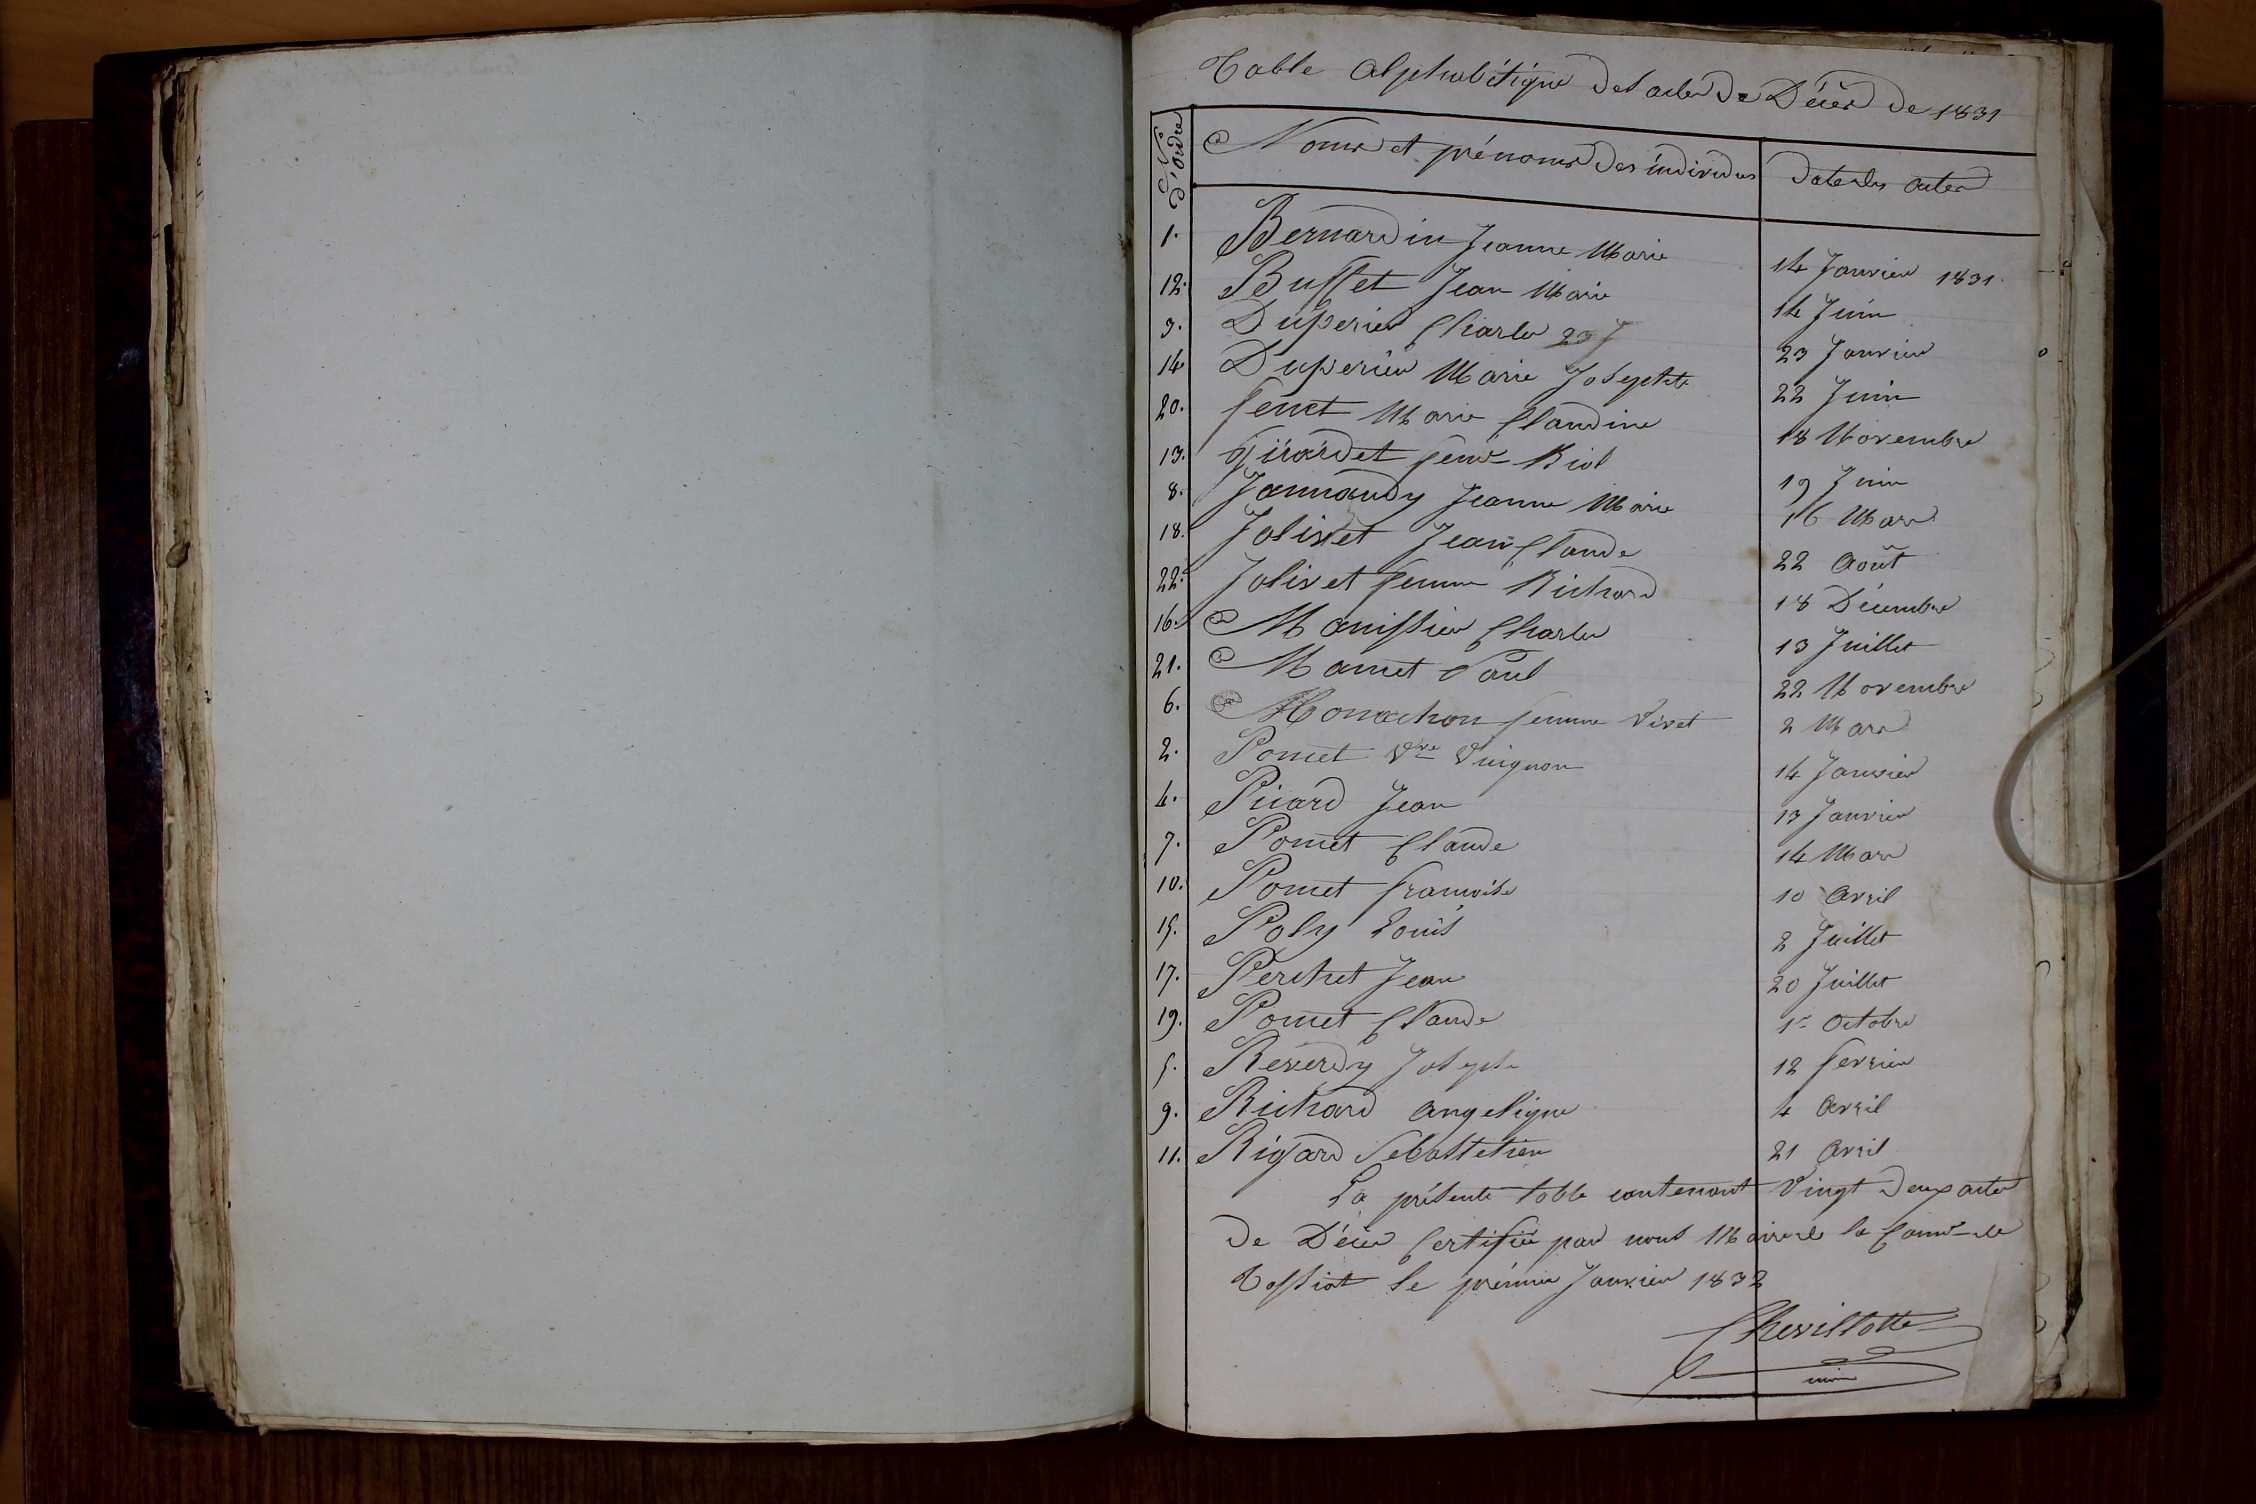 Table Alphabétique des actes De Décès De 1831
Nos d'ordre Noms et prénoms Des individus Date des actes
1. Bernardin Jeanne Marie 14 Janvier 1831.
12. Buffet Jean Marie 14 Juin
3. Duperier Charles 23 J 23 Janvier
14 Duperier Marie Josephte 22 Juin
20. fenet Marie Claudine 18 Novembre
13. Girardet feme Biol 19 Juin
8. Jannaudy Jeanne Marie 16 Mars
18. Jolivet Jean Claude 22 Août
22. Jolivet femme Richard 18 Décembre
16. Manissier Charles 13 Juillet
21. Mamet Paul 22 Novembre
6. Monachon femme Vivet 2 Mars
2. Pomet Vve Vuignon 14 Janvier
4. Picard Jean 13 Janvier
7. Pomet Claude 14 Mars
10. Pomet françoise 10 Avril
15. Poly Louis 2 Juillet
17. Perchet Jean 20 Juillet
19. Pomet Claude 1er Octobre
5. Reverdy Joseph 12 fevrier
9. Richard Angelique 4 Avril
11. Rigard Sebasttien 21 Avril
La présente table contenant Vingt Deux actes
De Décès Certifiée par nous Maire de la Comne de
Tossiat le prémier Janvier 1832
Chevillotte